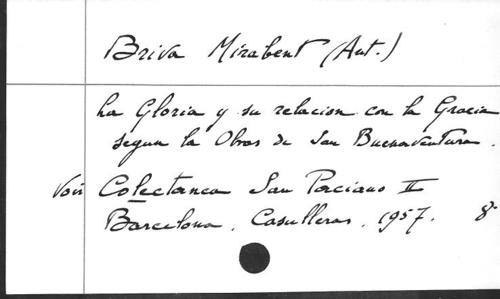 Briva Mirabent (Ant.)
La Gloria y su relacion con la Gracia
segun la Obras de San Buenaventura.
Voir Colectanea San Paciano II
Barcelona, Casulleras, 1957. 8°